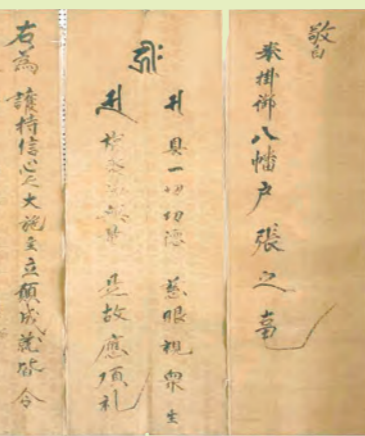 敬白
奉掛御八幡戸張之事
具一切功徳 慈眼視衆生
福聚海無量 是故應頂礼
右為護持信心之大施主立願成就皆令